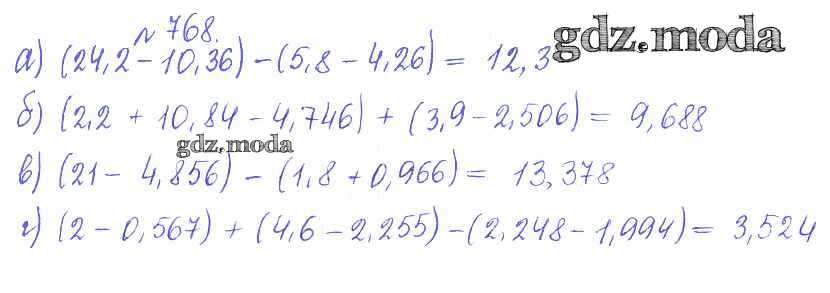 № 768.
а) (24,2 - 10,36) - (5,8 - 4,26) = 12,3 gdz.moda
б) (2,2 + 10,84 - 4,746) + (3,9 - 2,506) = 9,688
gdz.moda
в) (21 - 4,856) - (1,8 + 0,966) = 13,378
г) (2 - 0,567) + (4,6 - 2,255) - (2,248 - 1,994) = 3,524